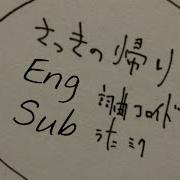 さっきの帰り
Eng
Sub
詞曲コロイド
うた ミク